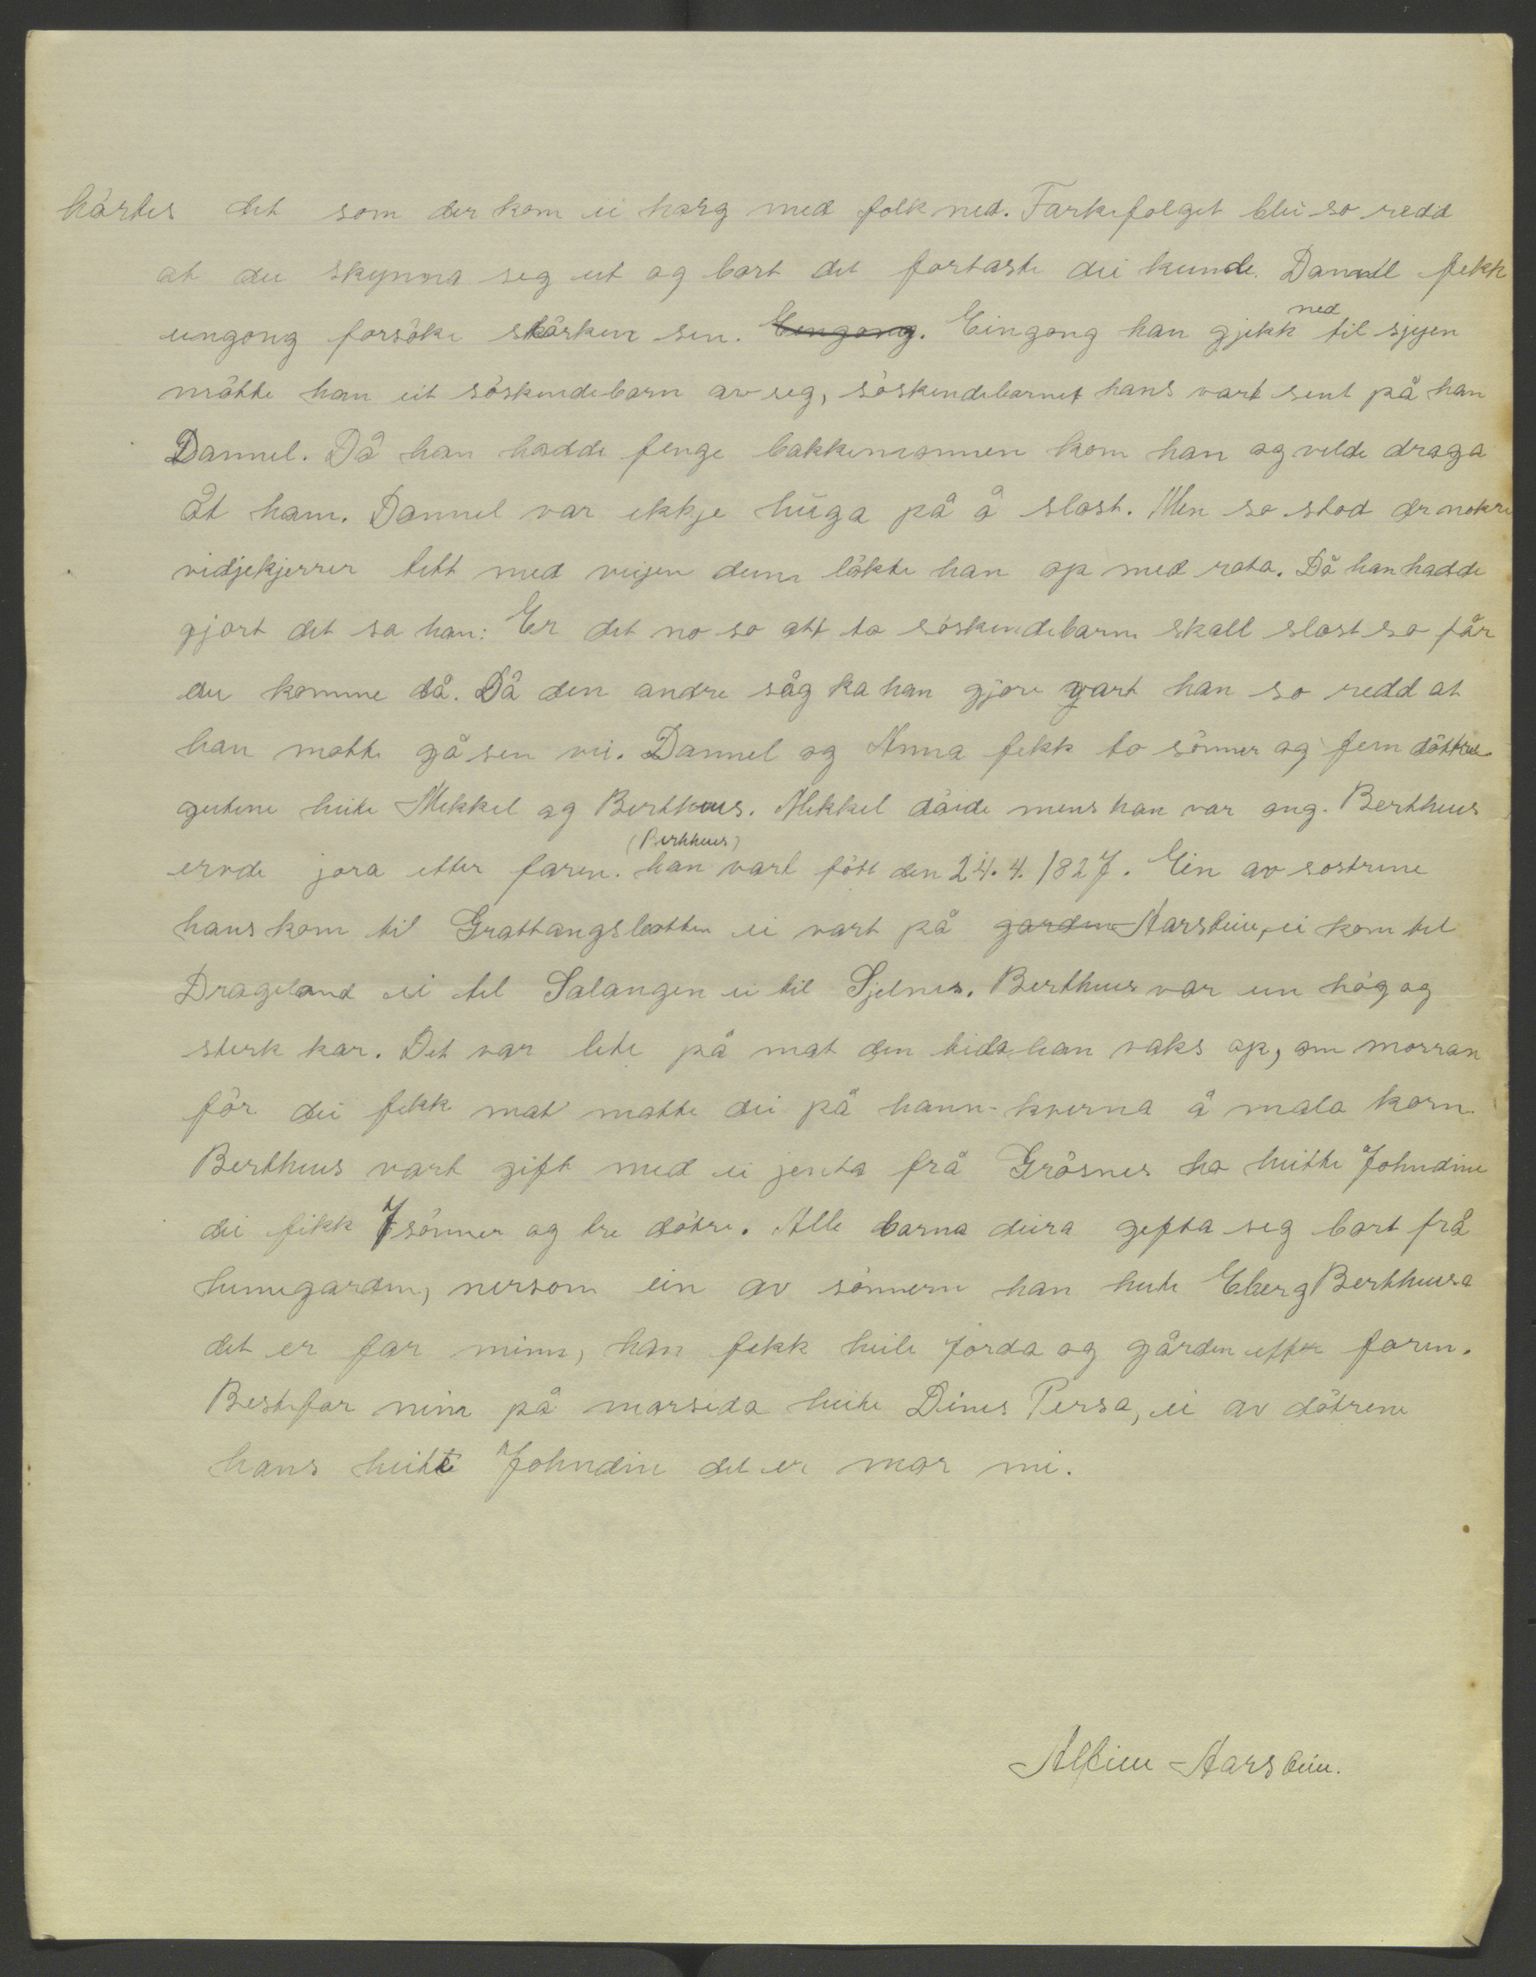 hørtes det som der kom ei horg med folk ned. Farkefølget blei so redd
at dei skynna seg ut og bort det fortaste dei kunde. Dannel fekk
eingong forsöke störken sin. Eingong. Eingong han gjekk ned til sjyen
mötte han eit söskendebarn av seg, söskendebarnet hans vart sint på han
Dannel. Då han hadde fenge bakkemannen kom han og vilde draga
åt ham. Dannel var ikkje huga på å slost. Men so stod der nokre
vidjekjerrer tett med veijen deim lökte han op med rota. Då han hadde
gjort det sa han: Er det no so att to söskendebarn skall slost so får
du komme då. Då den andre såg ka han gjore vart han so redd at
han motte gå sin vei. Dannel og Anna fekk to sönner og fem döttre
gutene heite Mekkel og Bertheus. Mekkel döide mens han var ong. Bertheus
ervde jora etter faren. han (Bertheus) vart fött den 24.4.1827. Ein av sostrene
hans kom til Grattangsbotten ei vart på garden Aarstein, ei kom til
Drageland ei til Salangen ei til Sjelnes. Bertheus var ein hög og
sterk kar. Det var lite på mat den tida han vaks op, om morran
för dei fekk mat motte dei på hann-kverna å mala korn.
Bertheus vart gift med ei jenta frå Grösnes ho heitte Johndine
dei fikk 7 sönner og tre dötre. Alle barna deira gifta seg bort frå
heimegarden, nersom ein av sönnern han heite Eberg Bertheusa
det er far minn, han fekk heile jorda og gården etter faren.
Bestefar min på morsida heite Dines Persa, ei av dötrene
hans heitte Johndine det er mor mi.
Alfine Aarstein.